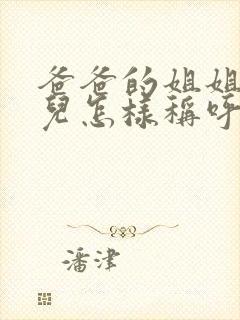 爸爸的姐姐
兒怎樣稱呼
潘津